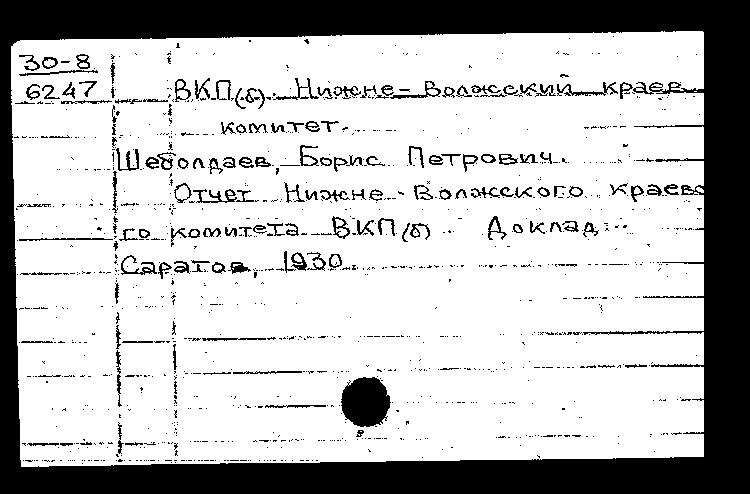 30-8
6247
ВКП(б). Нижне-Волжский краев.
комитет.
Шеболдаев, Борис Петрович.
Отчет Нижне-Волжского краево
го комитета ВКП(б). Доклад...
Саратов, 1930.